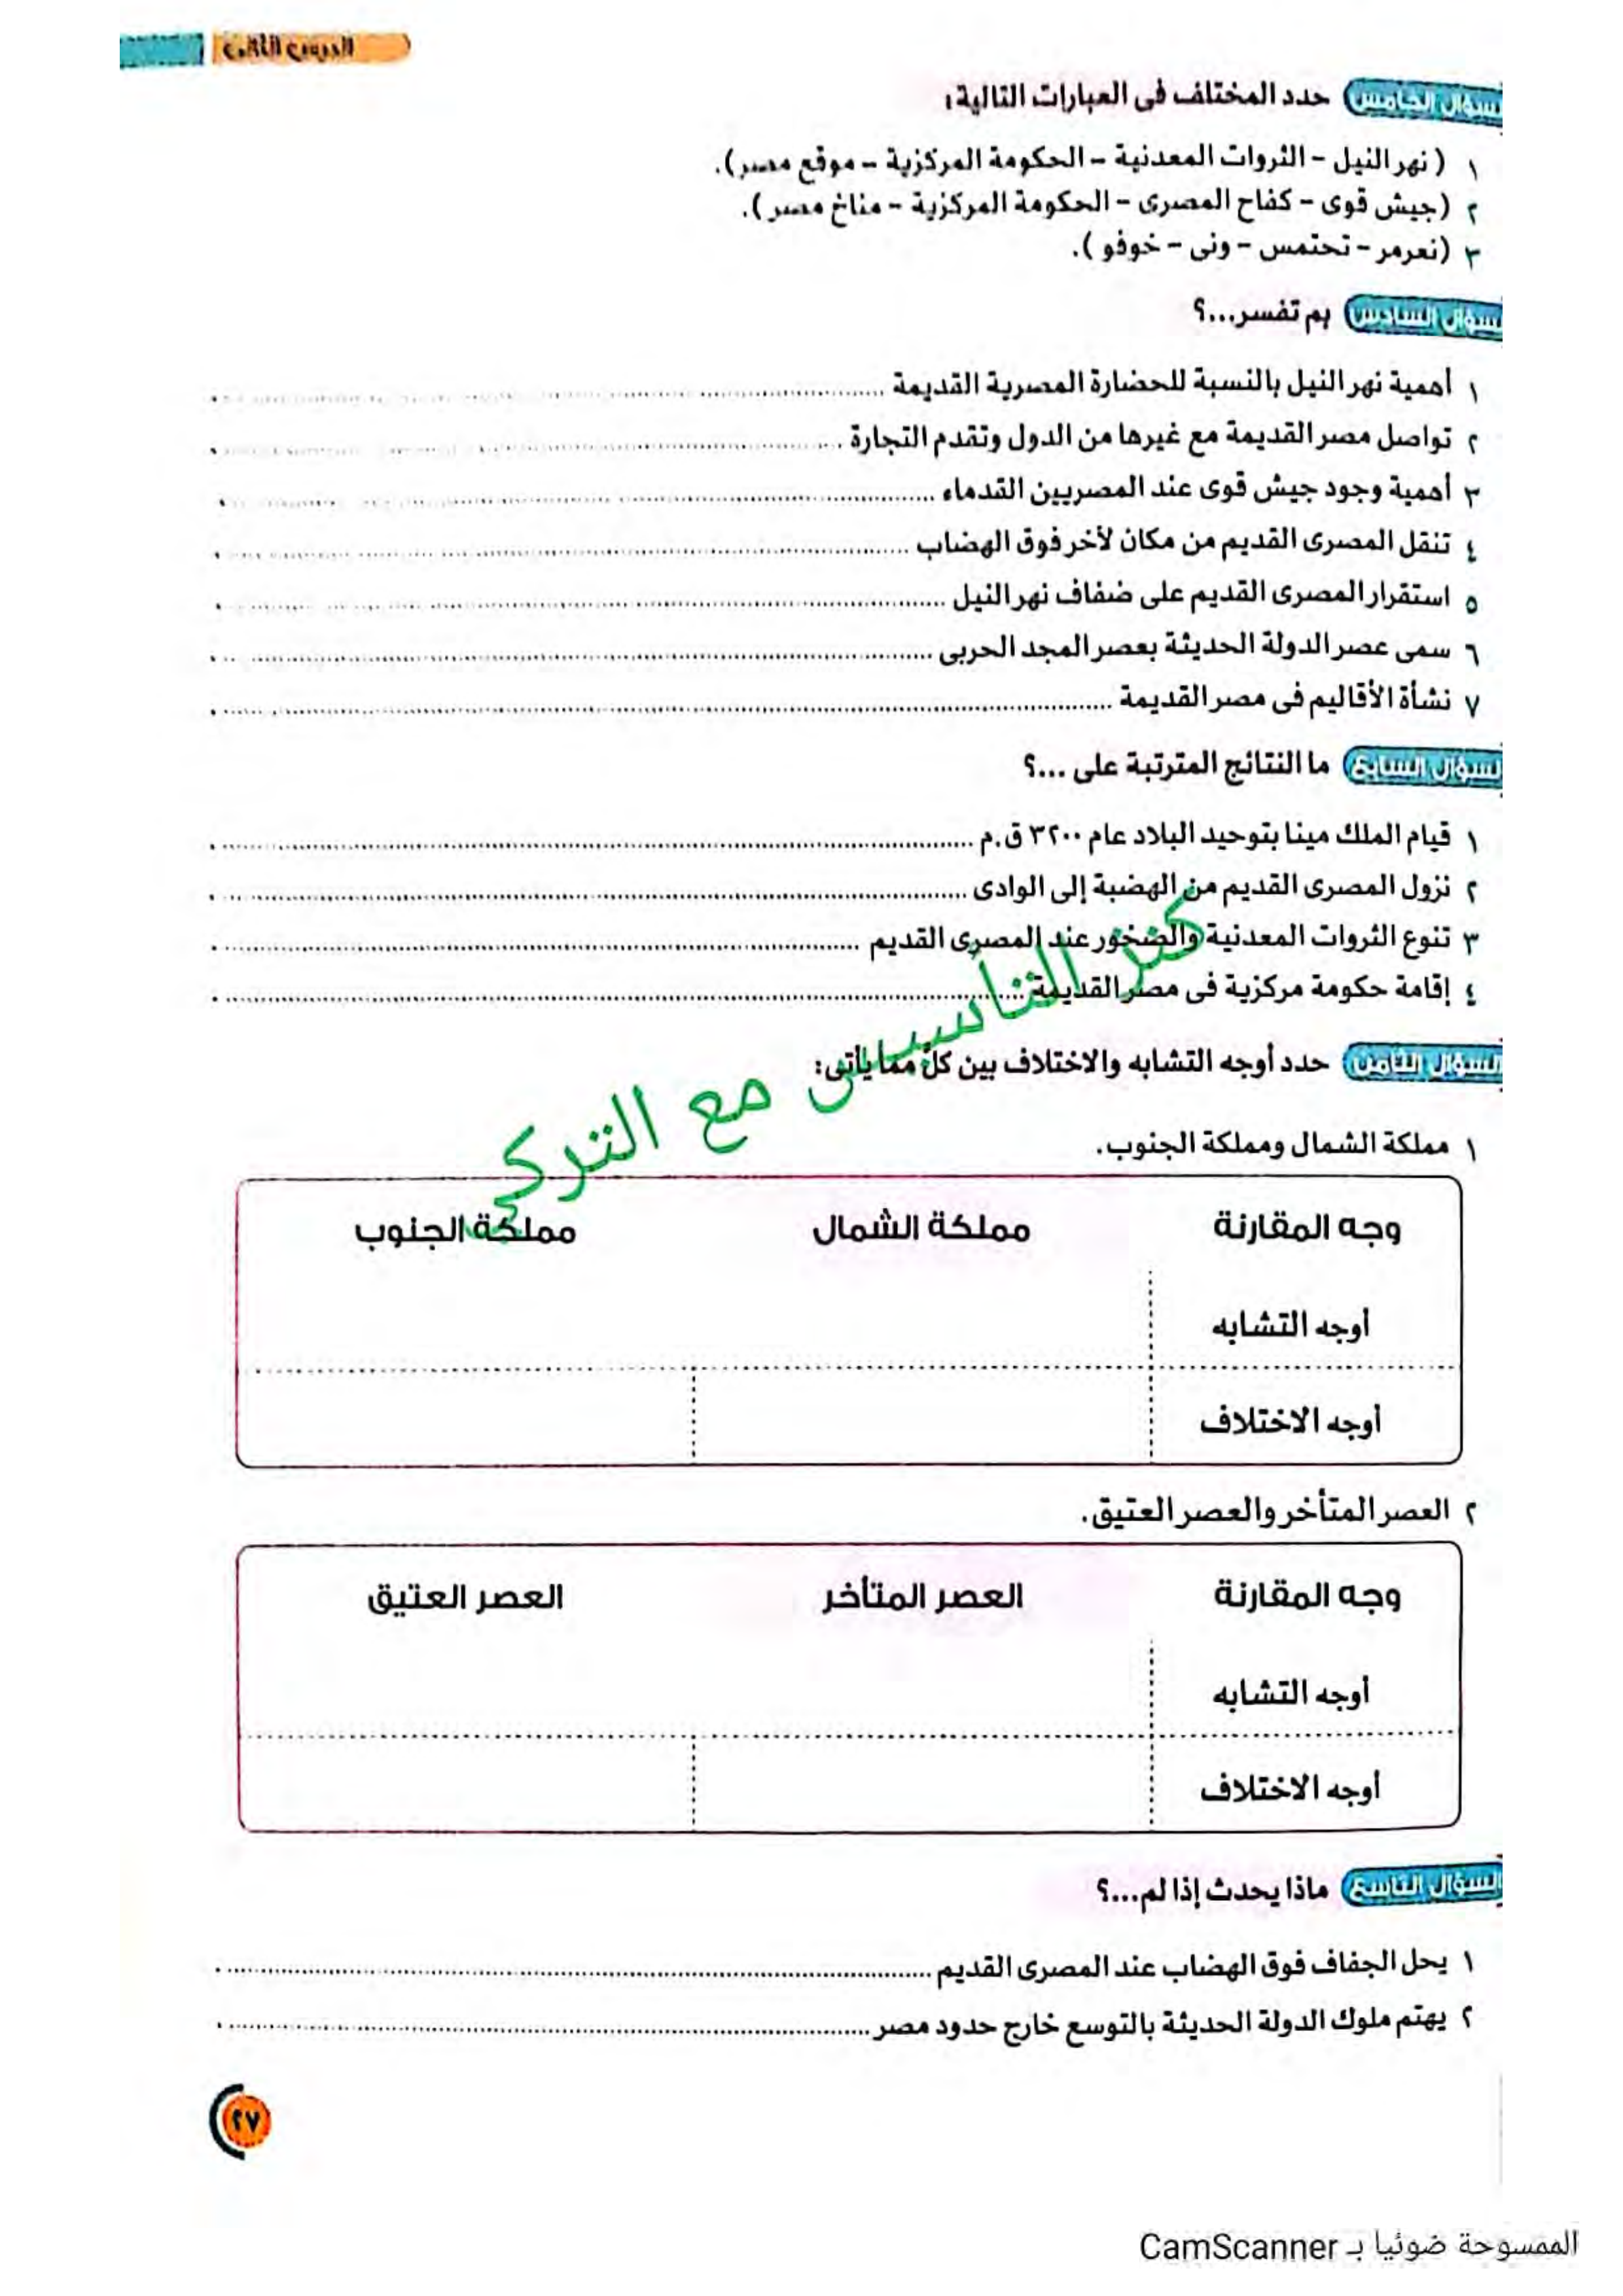 السؤال الخامس حدد المختلف فى العبارات التالية:
١ (نهر النيل - الثروات المعدنية - الحكومة المركزية - موقع مصر).
٢ (جيش قوى - كفاح المصرى - الحكومة المركزية - مناخ مصر).
٣ (نعرمر - تحتمس - ونى - خوفو).
السؤال السادس بم تفسر...؟
١ أهمية نهر النيل بالنسبة للحضارة المصرية القديمة
٢ تواصل مصر القديمة مع غيرها من الدول وتقدم التجارة
٣ أهمية وجود جيش قوى عند المصريين القدماء
٤ تنقل المصرى القديم من مكان لأخر فوق الهضاب
٥ استقرار المصرى القديم على ضفاف نهر النيل
٦ سمى عصر الدولة الحديثة بعصر المجد الحربى
٧ نشأة الأقاليم فى مصر القديمة
السؤال السابع ما النتائج المترتبة على ...؟
١ قيام الملك مينا بتوحيد البلاد عام ٣٢٠٠ ق.م
٢ نزول المصرى القديم من الهضبة إلى الوادى
٣ تنوع الثروات المعدنية والصخور عند المصرى القديم
٤ إقامة حكومة مركزية فى مصر القديمة
كنز التأسيس مع التركي
السؤال الثامن حدد أوجه التشابه والاختلاف بين كل مما يأتى:
١ مملكة الشمال ومملكة الجنوب.
وجه المقارنة مملكة الشمال مملكة الجنوب
أوجه التشابه
أوجه الاختلاف
٢ العصر المتأخر والعصر العتيق.
وجه المقارنة العصر المتأخر العصر العتيق
أوجه التشابه
أوجه الاختلاف
السؤال التاسع ماذا يحدث إذا لم...؟
١ يحل الجفاف فوق الهضاب عند المصرى القديم
٢ يهتم ملوك الدولة الحديثة بالتوسع خارج حدود مصر
٢٧
الممسوحة ضوئيا بـ CamScanner